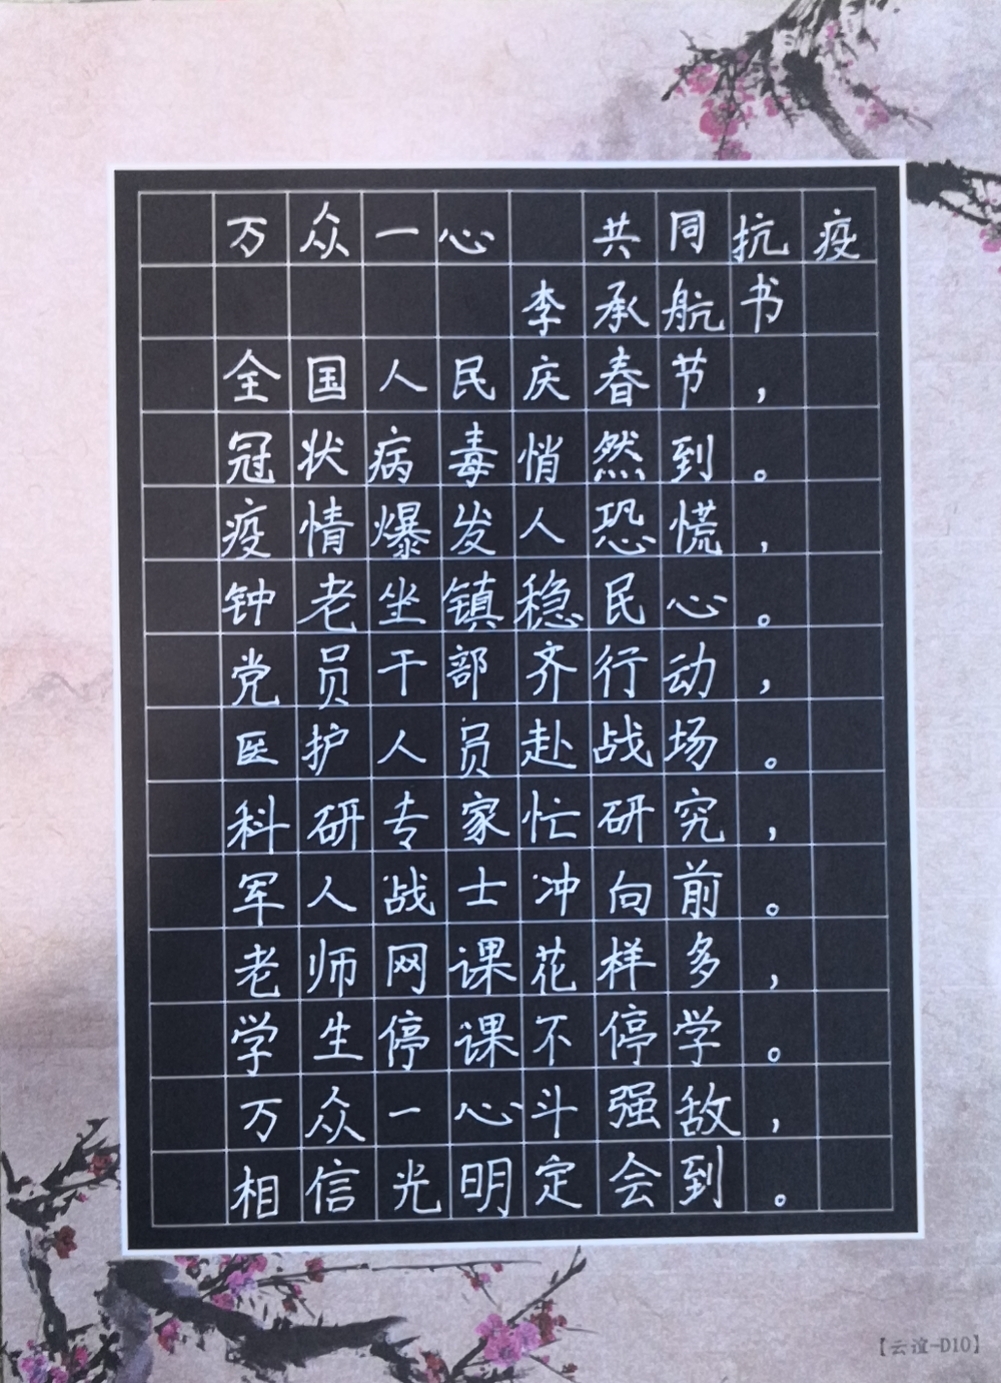 万众一心 共同抗疫
李承航书
全国人民庆春节，
冠状病毒悄然到。
疫情爆发人恐慌，
钟老坐镇稳民心。
党员干部齐行动，
医护人员赴战场。
科研专家忙研究，
军人战士冲向前。
老师网课花样多，
学生停课不停学。
万众一心斗强敌，
相信光明定会到。
【云谊-D10】